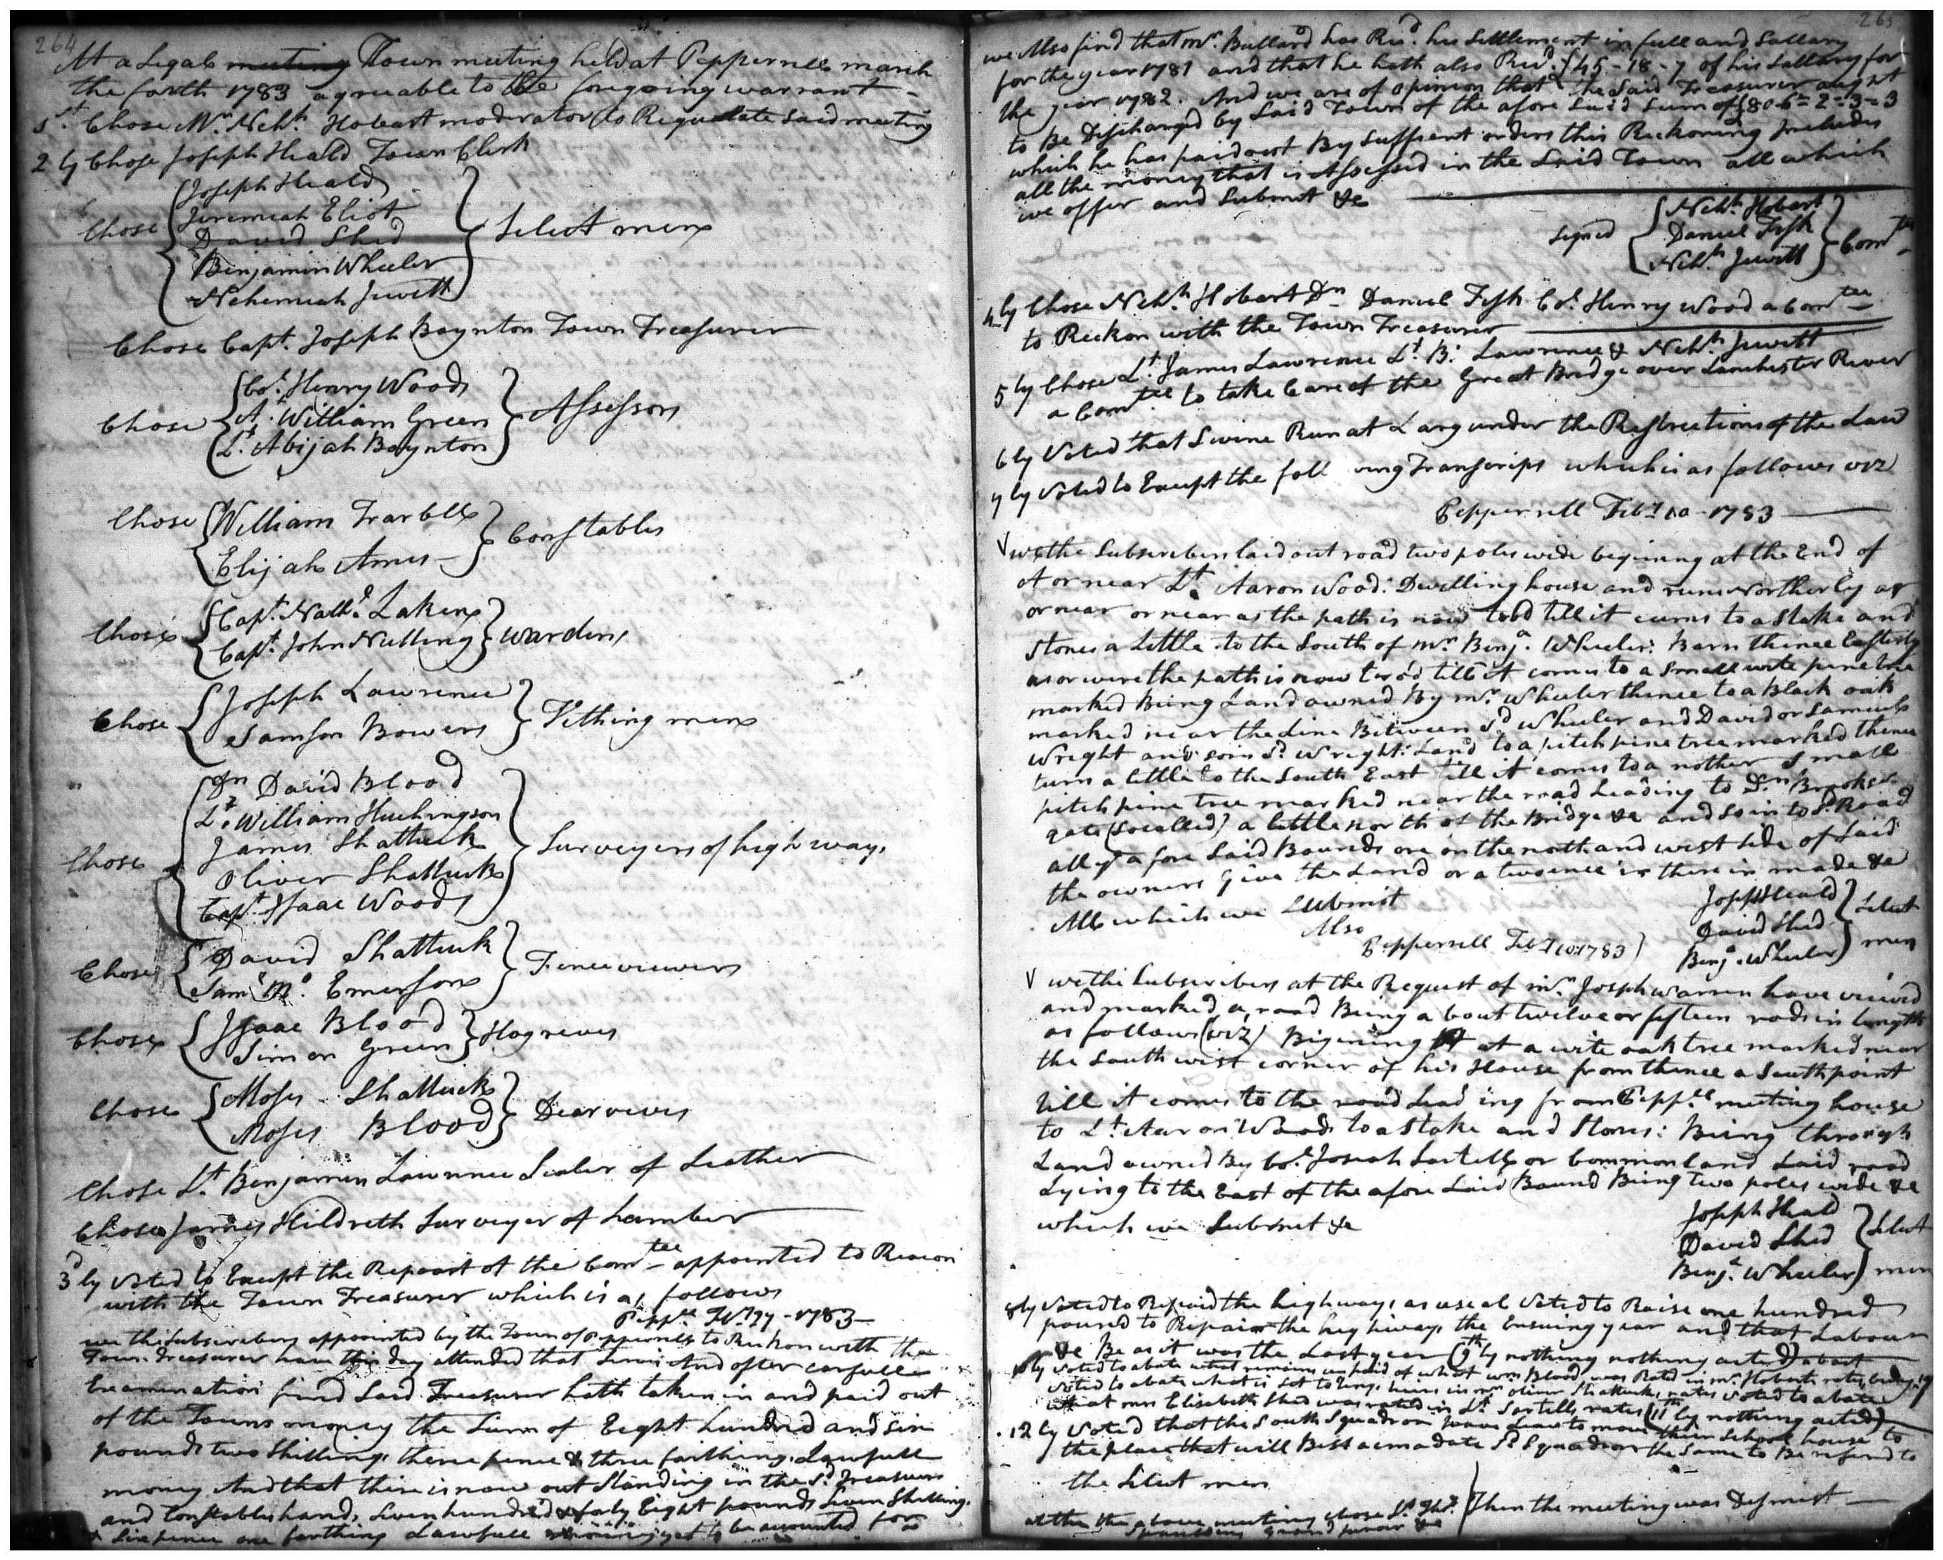 264
At a Legal meeting Town meeting held at Pepperrell march
the forth 1783 agreable to the foregoing warrant
1st Chose Mr. Nehh. Hobart moderator to Regulate said meeting
2ly Chose Joseph Heald Town Clerk
Chose Joseph Heald
Jeremiah Eliot
David Shed
Benjamin Wheeler
Nehemiah Jewett
Select men
Chose Capt. Joseph Boynton Town Treasurer
Chose Col. Henry Woods
William Green
Lt. Abijah Boynton
Assessors
Chose William Tarbell
Elijah Ames
Constables
Chose Capt. Nathl. Lakin
Capt. John Nutting
wardens
Chose Joseph Lawrence
Samson Bowers
Tithing men
Chose Dn David Blood
Lt. William Huchingson
James Shattuck
Oliver Shattuck
Capt. Isaac Woods
Surveyers of high ways
Chose David Shattuck
Saml. Emerson
Fence viewers
Chose Isaac Blood
Simon Green
Hogreves
Chose Moses Shattuck
Moses Blood
Dear reves
Chose Lt. Benjamin Lawrence Sealer of Leather
Chose James Hildreth Surveyer of Lamber
3dly Voted to Except the Repoart of the Comtee appointed to Reacon
with the Town Treasurer which is as follows
Pepprell 1783
we the subscribers appointed by the Town of Pepperrell to Reckon with the
Town Treasurer have this day attended that Servis And after carfull
Examination find Said Treasurer hath taken in and paid out
of the Towns money the Sum of Eight hundred and six
pounds two Shillings three pence & three farthings Lawfull
money And that there is now out Standing in the Sd. Treasurers
and Constables hands, Seven hundred & forty Eight pounds Seven Shillings
Six pence one farthing Lawfull yet to be accounted for
265
we Also find that mr. Bullard has Recd. his Settlement in full and Sallary
for the year 1781 and that he hath also Recd. £45-18-7 of his Sallary for
the year 1782. And we are of opinion that the Said Treasurer aught
to Be Discharged by Said Town of the afore Said Sum of £806=2=3=3
which he has paid out By Suffient orders this Reckoning Includes
all the money that is Assessed in the Said Town all which
we offer and Submit &c
Signed Nehh. Hobart
Daniel Fisk
Nehh. Jewett
Comtee
4ly Chose Nehh Hobart Dn Daniel Fisk Col. Henry Wood a Comtee
to Reckon with the Town Treasurer
5ly Chose Lt. James Lawrence Lt. B. Lawrence & Nehh Jewett
a Comtee to take Care of the Great Bridge over Lanchester River
6ly Voted that Swine Run at Larg under the Restrections of the Law
7ly Voted to Except the foll wing Transcrips which is as follows viz
Pepperrell Feby 10 1783
we the Subscribers laid out road two poles wide begining at the End of
At or near Lt. Aaron Wood: Dwelling house and runs Northerly as
or near or near as the path is now trod till it cums to a Stake and
Stones a Little to the South of mr. Benja. Wheeler: Barn thence Easterly
as or were the path is now trod till it comes to a Small wite pine tree
marked Being Land owned By mr. Wheeler thence to a Black oak
marked near the Line Between Sd Wheeler and David or Samuel
Wright and soin Sd. Wright: Land to a pitch pine tree marked thence
turns a little to the South East till it comes to a nother Small
pitch pine tree marked near the road Leading to Dn Brooks:
gate (so called) a little north of the Bridge &c and So in to Sd. Road
all ye afore Said Bounds are on the north and west side of Said
the owners give the Land or a twence is there in made &c
All which we Submit
Joseph Heald
David Shed
Benja. Wheeler
Select men
Also
Pepperrell Feby 10 1783
we the Subscribers at the Request of mr. Joseph Warren have viewed
and marked a road Being a bout twelve or fifteen rods in length
as follows (viz) Bigining at a wite oak tree marked near
the South west corner of his House from thence a South point
till it comes to the road Lead ing from Pepprell meeting house
to Lt. Aaron Woods to a Stake and Stones: Being through
Land owned By Col. Josiah Sartell or Common land Said road
Lying to the East of the afore Said Bound Being two poles wide &c
which we Submit &c
Joseph Heald
David Shed
Benja. Wheeler
Select men
8ly Voted to Repaid the highways as useal Voted to Raise one hundred
pound to Repair the highways the Ensuing year and that Labour
&c Be as it was the Last year (9thly nothing nothing acted) about
10ly Voted to abate what remains unpaid of what wm Blood was Rated in mr. Hobarts rates
Voted to abate what is Set to in mr oliver Shattucks rates Voted to abate
what mrs Elizebeth Shed was rated in Lt. Sartells rates (11thly nothing acted)
12ly Voted that the South Squadron have Leave to move their School house to
the place that will Best acomadate Sd Squadron the Same to Be refered to
the Select men
at the the above meeting chose Lt. Thos.
Spaulding Grand juror &c
Then the meeting was Desmist